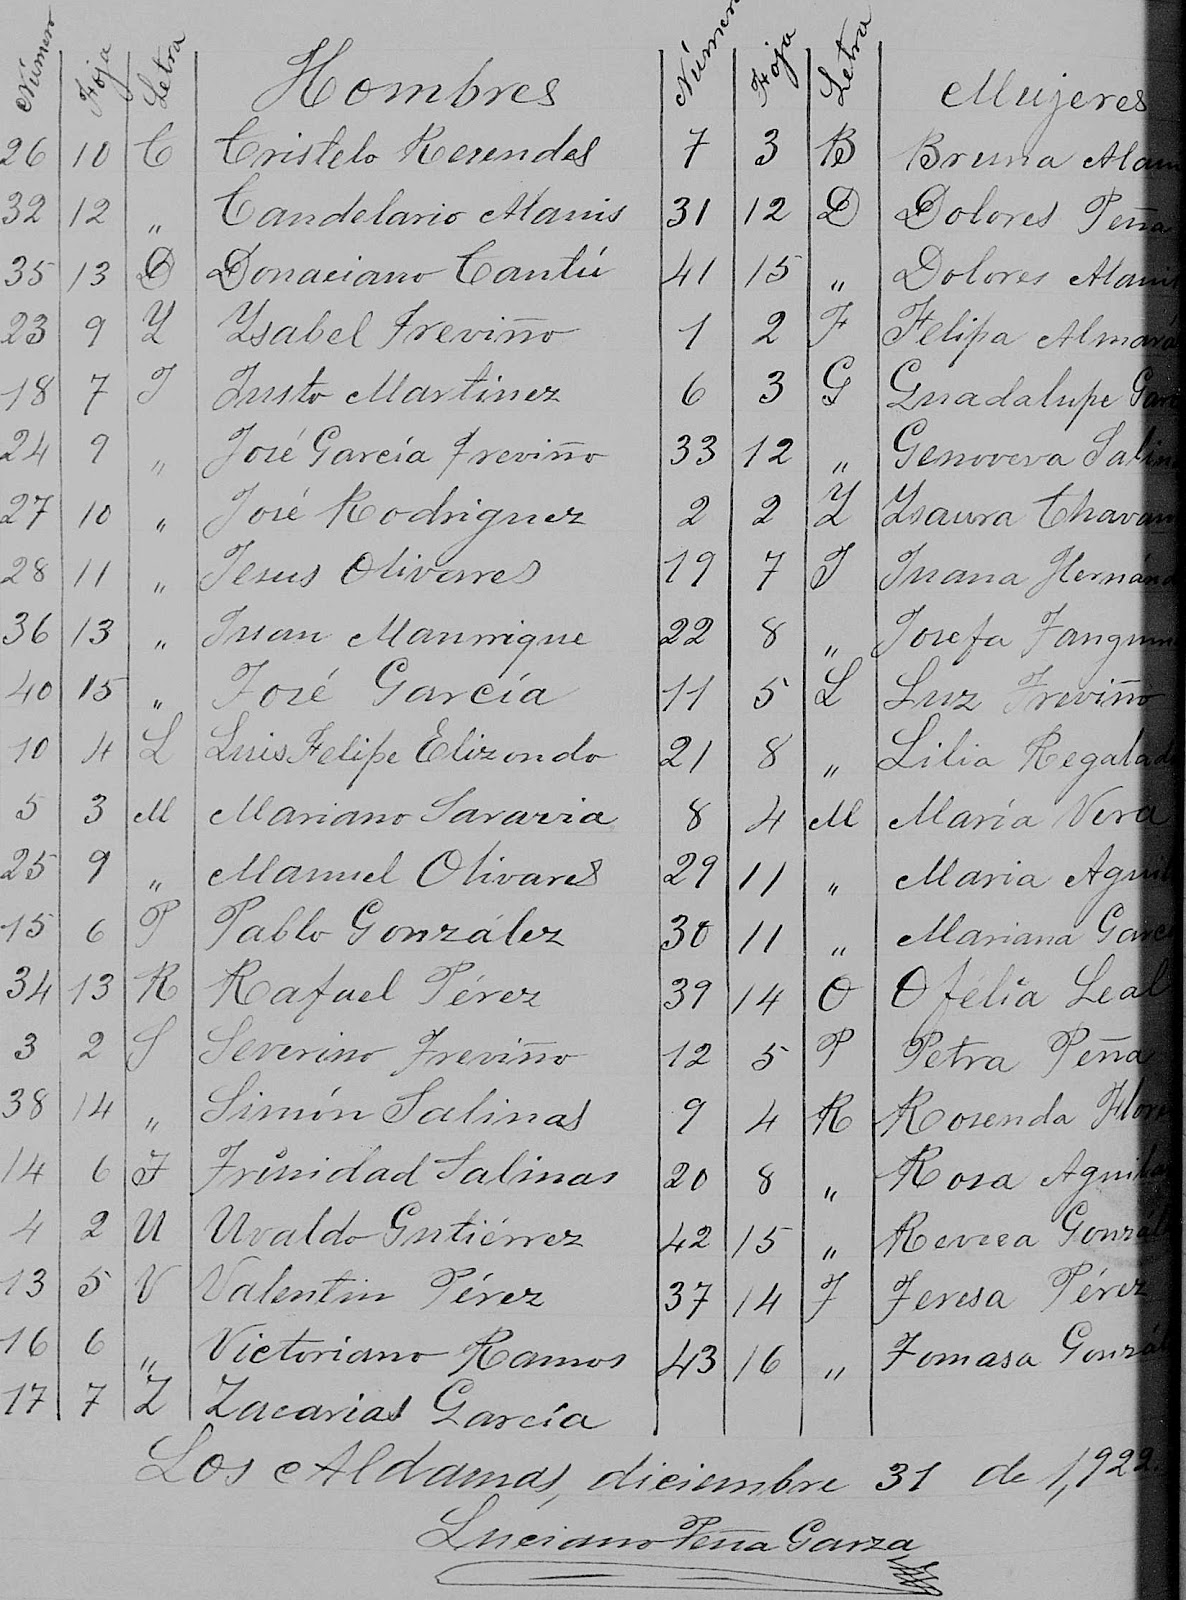 Número Foja Letra Hombres Número Foja Letra Mujeres
26 10 C Cristelo Resendes 7 3 B Bruna Alan
32 12 „ Candelario Alanis 31 12 D Dolores Peña
35 13 D Donaciano Cantú 41 15 „ Dolores Alanis
23 9 Y Ysabel Treviño 1 2 F Felipa Almará
18 7 J Justo Martinez 6 3 G Guadalupe Garc
24 9 „ José García Treviño 33 12 „ Genoveva Salin
27 10 „ José Rodriguez 2 2 Y Ysaura Chavar
28 11 „ Jesus Olivares 19 7 J Juana Hernánd
36 13 „ Juan Manrrique 22 8 „ Josefa
40 15 „ José García 11 5 L Luz Treviño
10 4 L Luis Felipe Elizondo 21 8 „ Lilia Regalad
5 3 M Mariano Saravia 8 4 M María Vera
25 9 „ Manuel Olivares 29 11 „ Maria Aguil
15 6 P Pablo González 30 11 „ Mariana Garc
34 13 R Rafael Pérez 39 14 O Ofélia Leal
3 2 S Severino Treviño 12 5 P Petra Peña
38 14 „ Simón Salinas 9 4 R Rosenda Flores
14 6 T Trinidad Salinas 20 8 „ Rosa Aguilar
4 2 U Uvaldo Gutiérrez 42 15 „ Gonzál
13 5 V Valentin Pérez 37 14 T Teresa Pérez
16 6 „ Victoriano Ramos 43 16 „ Tomasa Gonzál
17 7 Z Zacarias García
Los Aldamas, diciembre 31 de 1,922.
Luciano Peña Garza